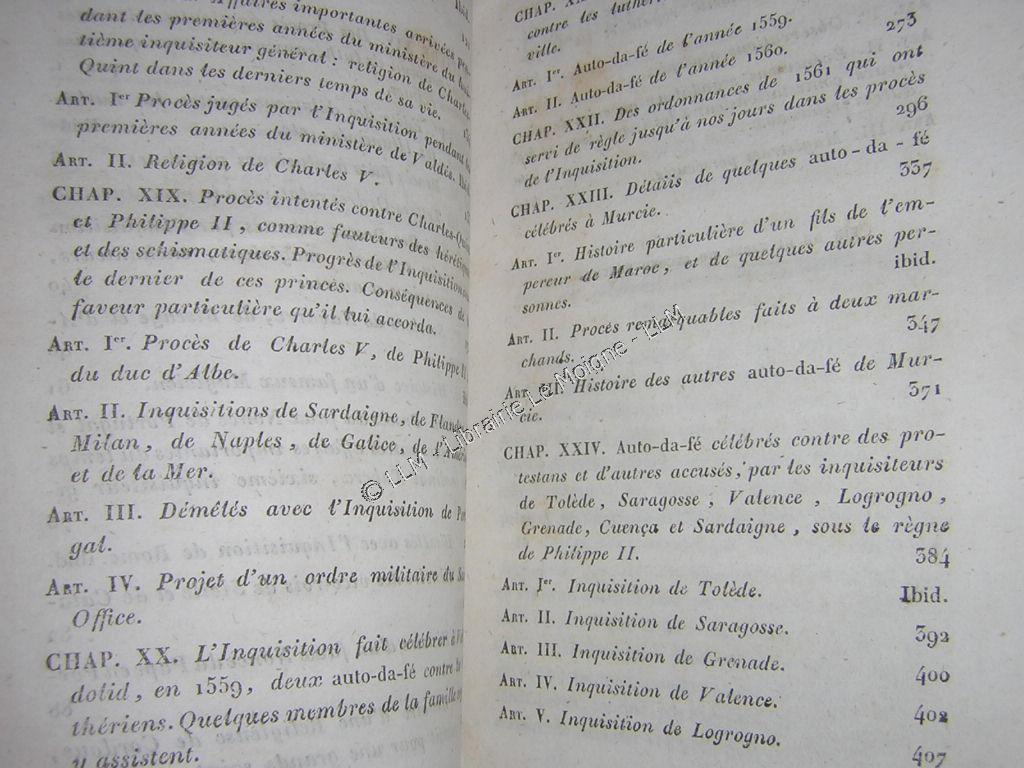 Affaires importantes arrivées pen-
dant les premières années du ministère du
tième inquisiteur général : religion de Charles
Quint dans les derniers temps de sa vie.
ART. Ier Procès jugés par l'Inquisition pendant
premières années du ministère de Valdès. Ibid
ART. II. Religion de Charles V.
CHAP. XIX. Procès intentés contre Charles-Qu
et Philippe II, comme fauteurs des hérétiq
et des schismatiques. Progrès de l'Inquisition
le dernier de ces princes. Conséquences de
faveur particulière qu'il lui accorda.
ART. Ier. Procès de Charles V, de Philippe II
du duc d'Albe.
ART. II. Inquisitions de Sardaigne, de Fland
Milan, de Naples, de Galice, de l'A
et de la Mer.
ART. III. Démêlés avec l'Inquisition de Po
gal.
ART. IV. Projet d'un ordre militaire du Sa
Office.
CHAP. XX. L'Inquisition fait célébrer à
dolid, en 1559, deux auto-da-fé contre
thériens. Quelques membres de la famille
y assistent.
contre les luthér
ville. 273
ART. Ier. Auto-da-fé de l'année 1559.
ART. II. Auto-da-fé de l'année 1560.
CHAP. XXII. Des ordonnances de 1561 qui ont
servi de règle jusqu'à nos jours dans les procès
de l'Inquisition. 296
CHAP. XXIII. Détails de quelques auto-da-fé
célébrés à Murcie. 337
ART. Ier. Histoire particulière d'un fils de l'em-
pereur de Maroc, et de quelques autres per-
sonnes. ibid.
ART. II. Procès remarquables faits à deux mar-
chands. 347
ART. III. Histoire des autres auto-da-fé de Mur-
cie. 371
CHAP. XXIV. Auto-da-fé célébrés contre des pro-
testans et d'autres accusés, par les inquisiteurs
de Tolède, Saragosse, Valence, Logrogno,
Grenade, Cuença et Sardaigne, sous le règne
de Philippe II. 384
ART. Ier. Inquisition de Tolède. Ibid.
ART. II. Inquisition de Saragosse. 392
ART. III. Inquisition de Grenade. 400
ART. IV. Inquisition de Valence. 402
ART. V. Inquisition de Logrogno. 407
© LLM - Librairie Le Moigne - LLM